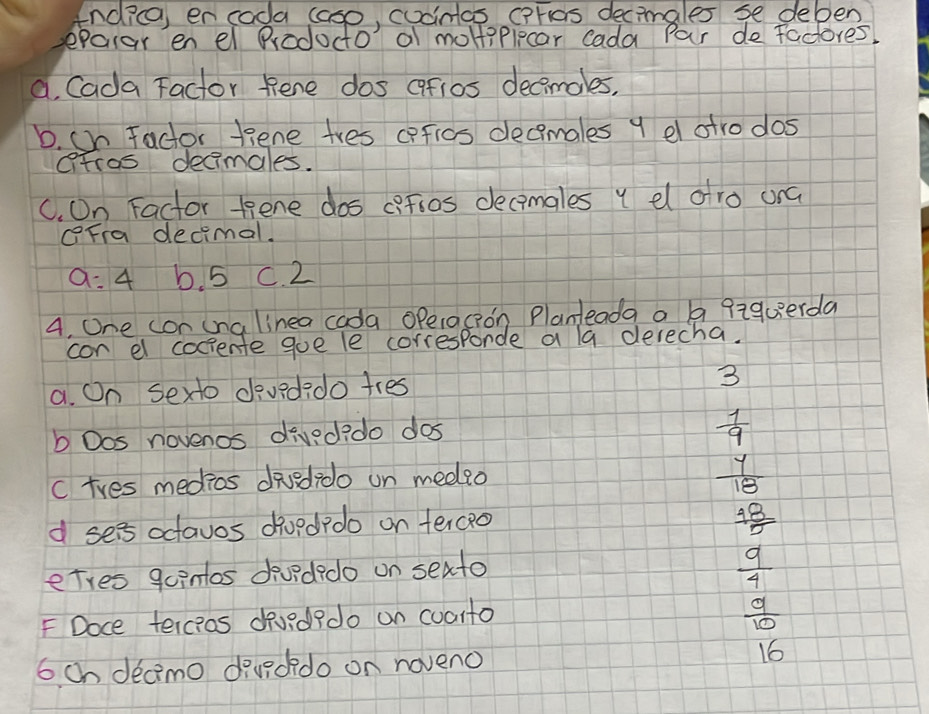 Indica, en cada caso, cuántas cifras decimales se deben
separar en el Producto al moltiplicar cada Par de factores.
a. Cada Factor tiene dos cifras decimales.
b. Un Factor tiene tres cifras decimales y el otro dos
cifras decimales.
C. Un Factor tiene dos cifras decimales y el otro una
cifra decimal.
a: 4 b. 5 C. 2
4. Une con una linea cada operación Planteada a la izquierda
con el cociente que le corresponde a la derecha.
a. Un sexto dividido tres 3
b Dos novenos dividido dos 1/9
c tres medios dividido un medio 1/18
d seis octavos dividido un tercio 18/5
e Tres quintos dividido un sexto 9/4
F Doce tercios dividido un cuarto 9/10
6 Un décimo dividido un noveno 16